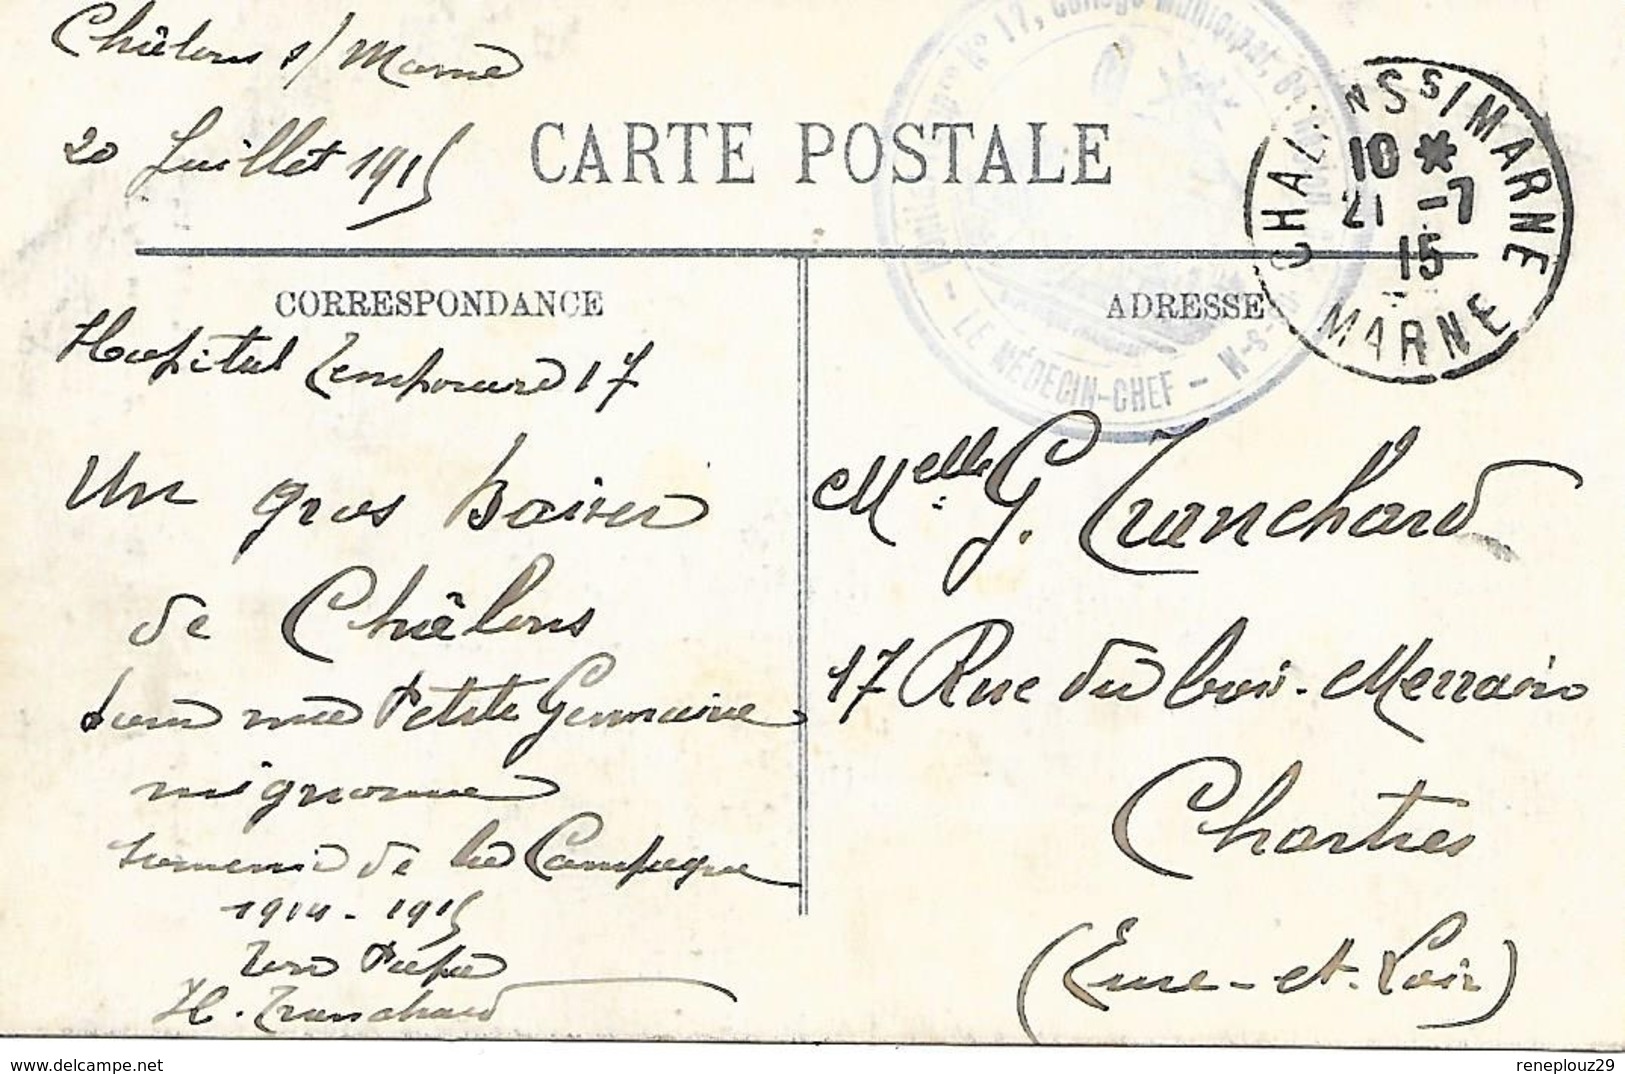 Châlons s/ Marne
20 Juillet 1915
CARTE POSTALE
N° 17, Collège Municipal,
- LE MÉDECIN-CHEF -
CHALONS S/MARNE
10 *
21 -7
15
MARNE
CORRESPONDANCE
ADRESSE
Hopital Temporaire 17
Un gros baiser
de Châlons
pour ma Petite Germaine
mignonne
Souvenir de la Campagne
1914-1915
Ton Papa
H. Tranchard
Melle G. Tranchard
17 Rue du bois-Merrain
Chartres
(Eure-et-Loir)
delcampe.net
reneplouz29